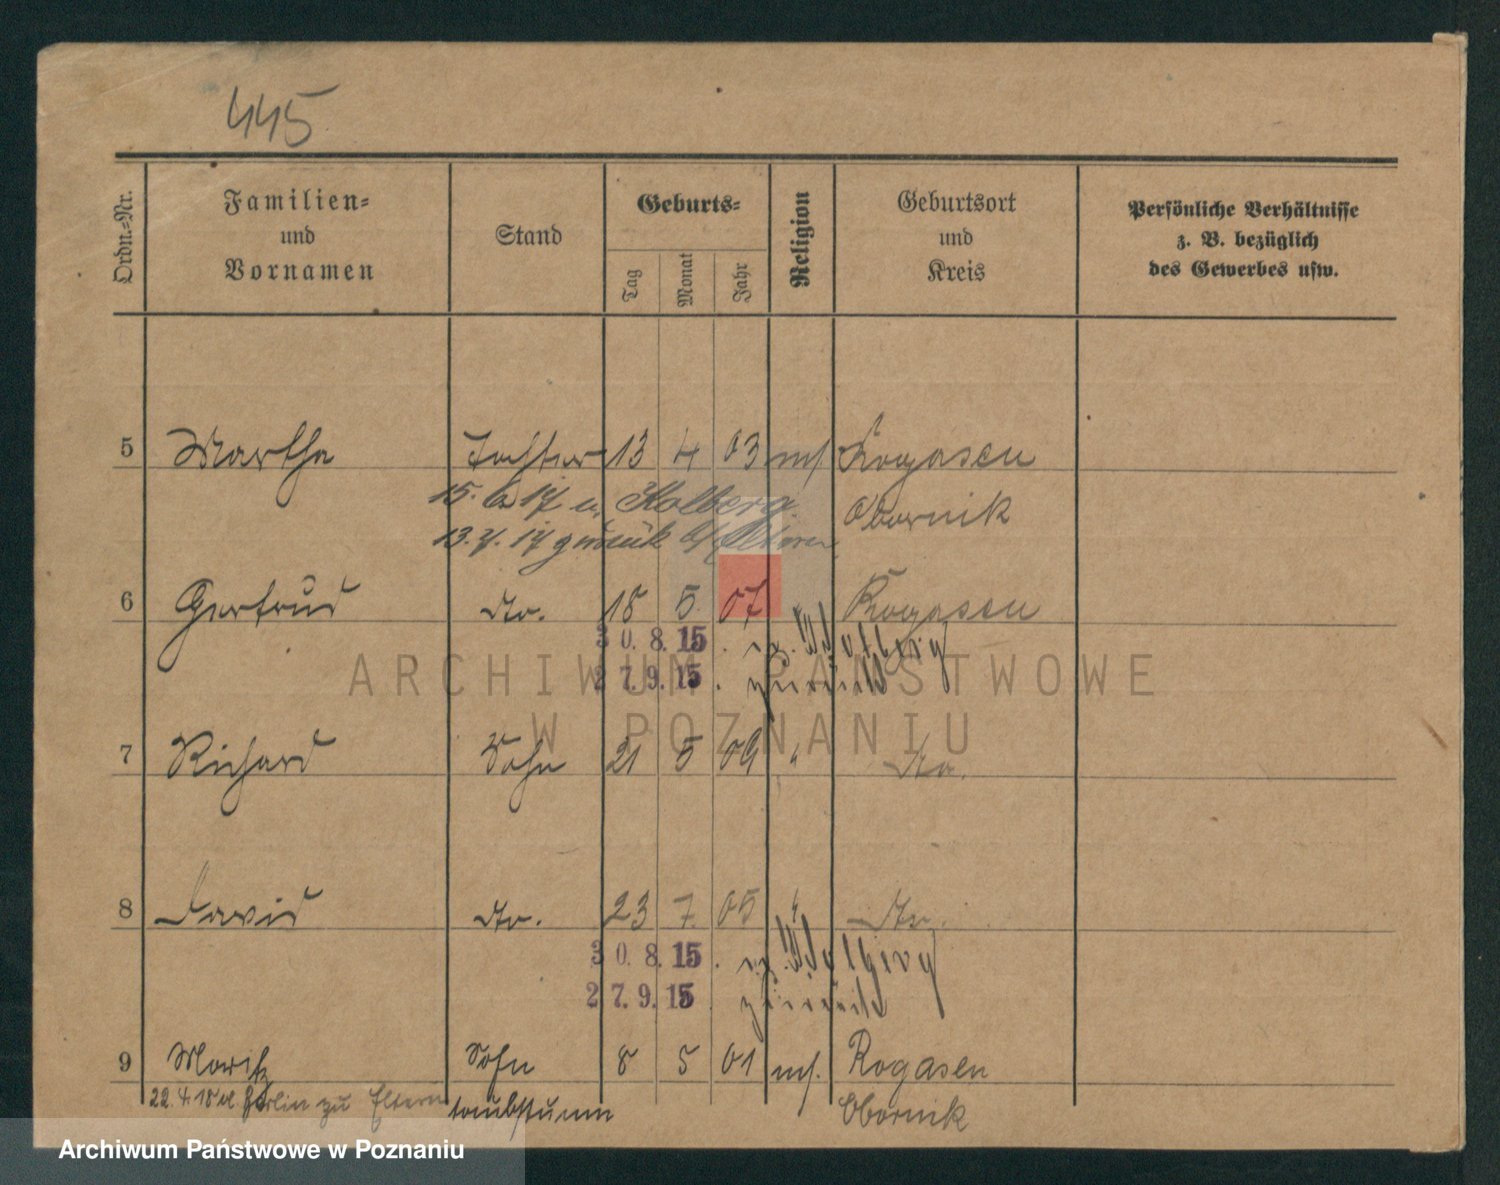 445
Ordn.-Nr.
Familien-
und
Vornamen
Stand
Geburts-
Tag
Monat
Jahr
Religion
Geburtsort
und
Kreis
Persönliche Verhältnisse
z. B. bezüglich
des Gewerbes usw.
5 Martha Tochter 13 4 03 mos. Rogasen
15. 6 17 n. Kolberg. Obornik
13. 7. 17 zurück Eltern
6 Gertrud do. 18 5. 07 " Rogasen
30. 8. 15. n. Kolberg
27. 9. 15. zurück
7 Richard Sohn 21 5 09 " do.
8 David do. 23 7. 05 " do.
30. 8. 15. n. Kolberg
27. 9. 15. zurück
9 Moritz Sohn 8 5 01 mos. Rogasen
22. 4. 18 Berlin zu Eltern taubstumm Obornik
ARCHIWUM PAŃSTWOWE
W POZNANIU
Archiwum Państwowe w Poznaniu